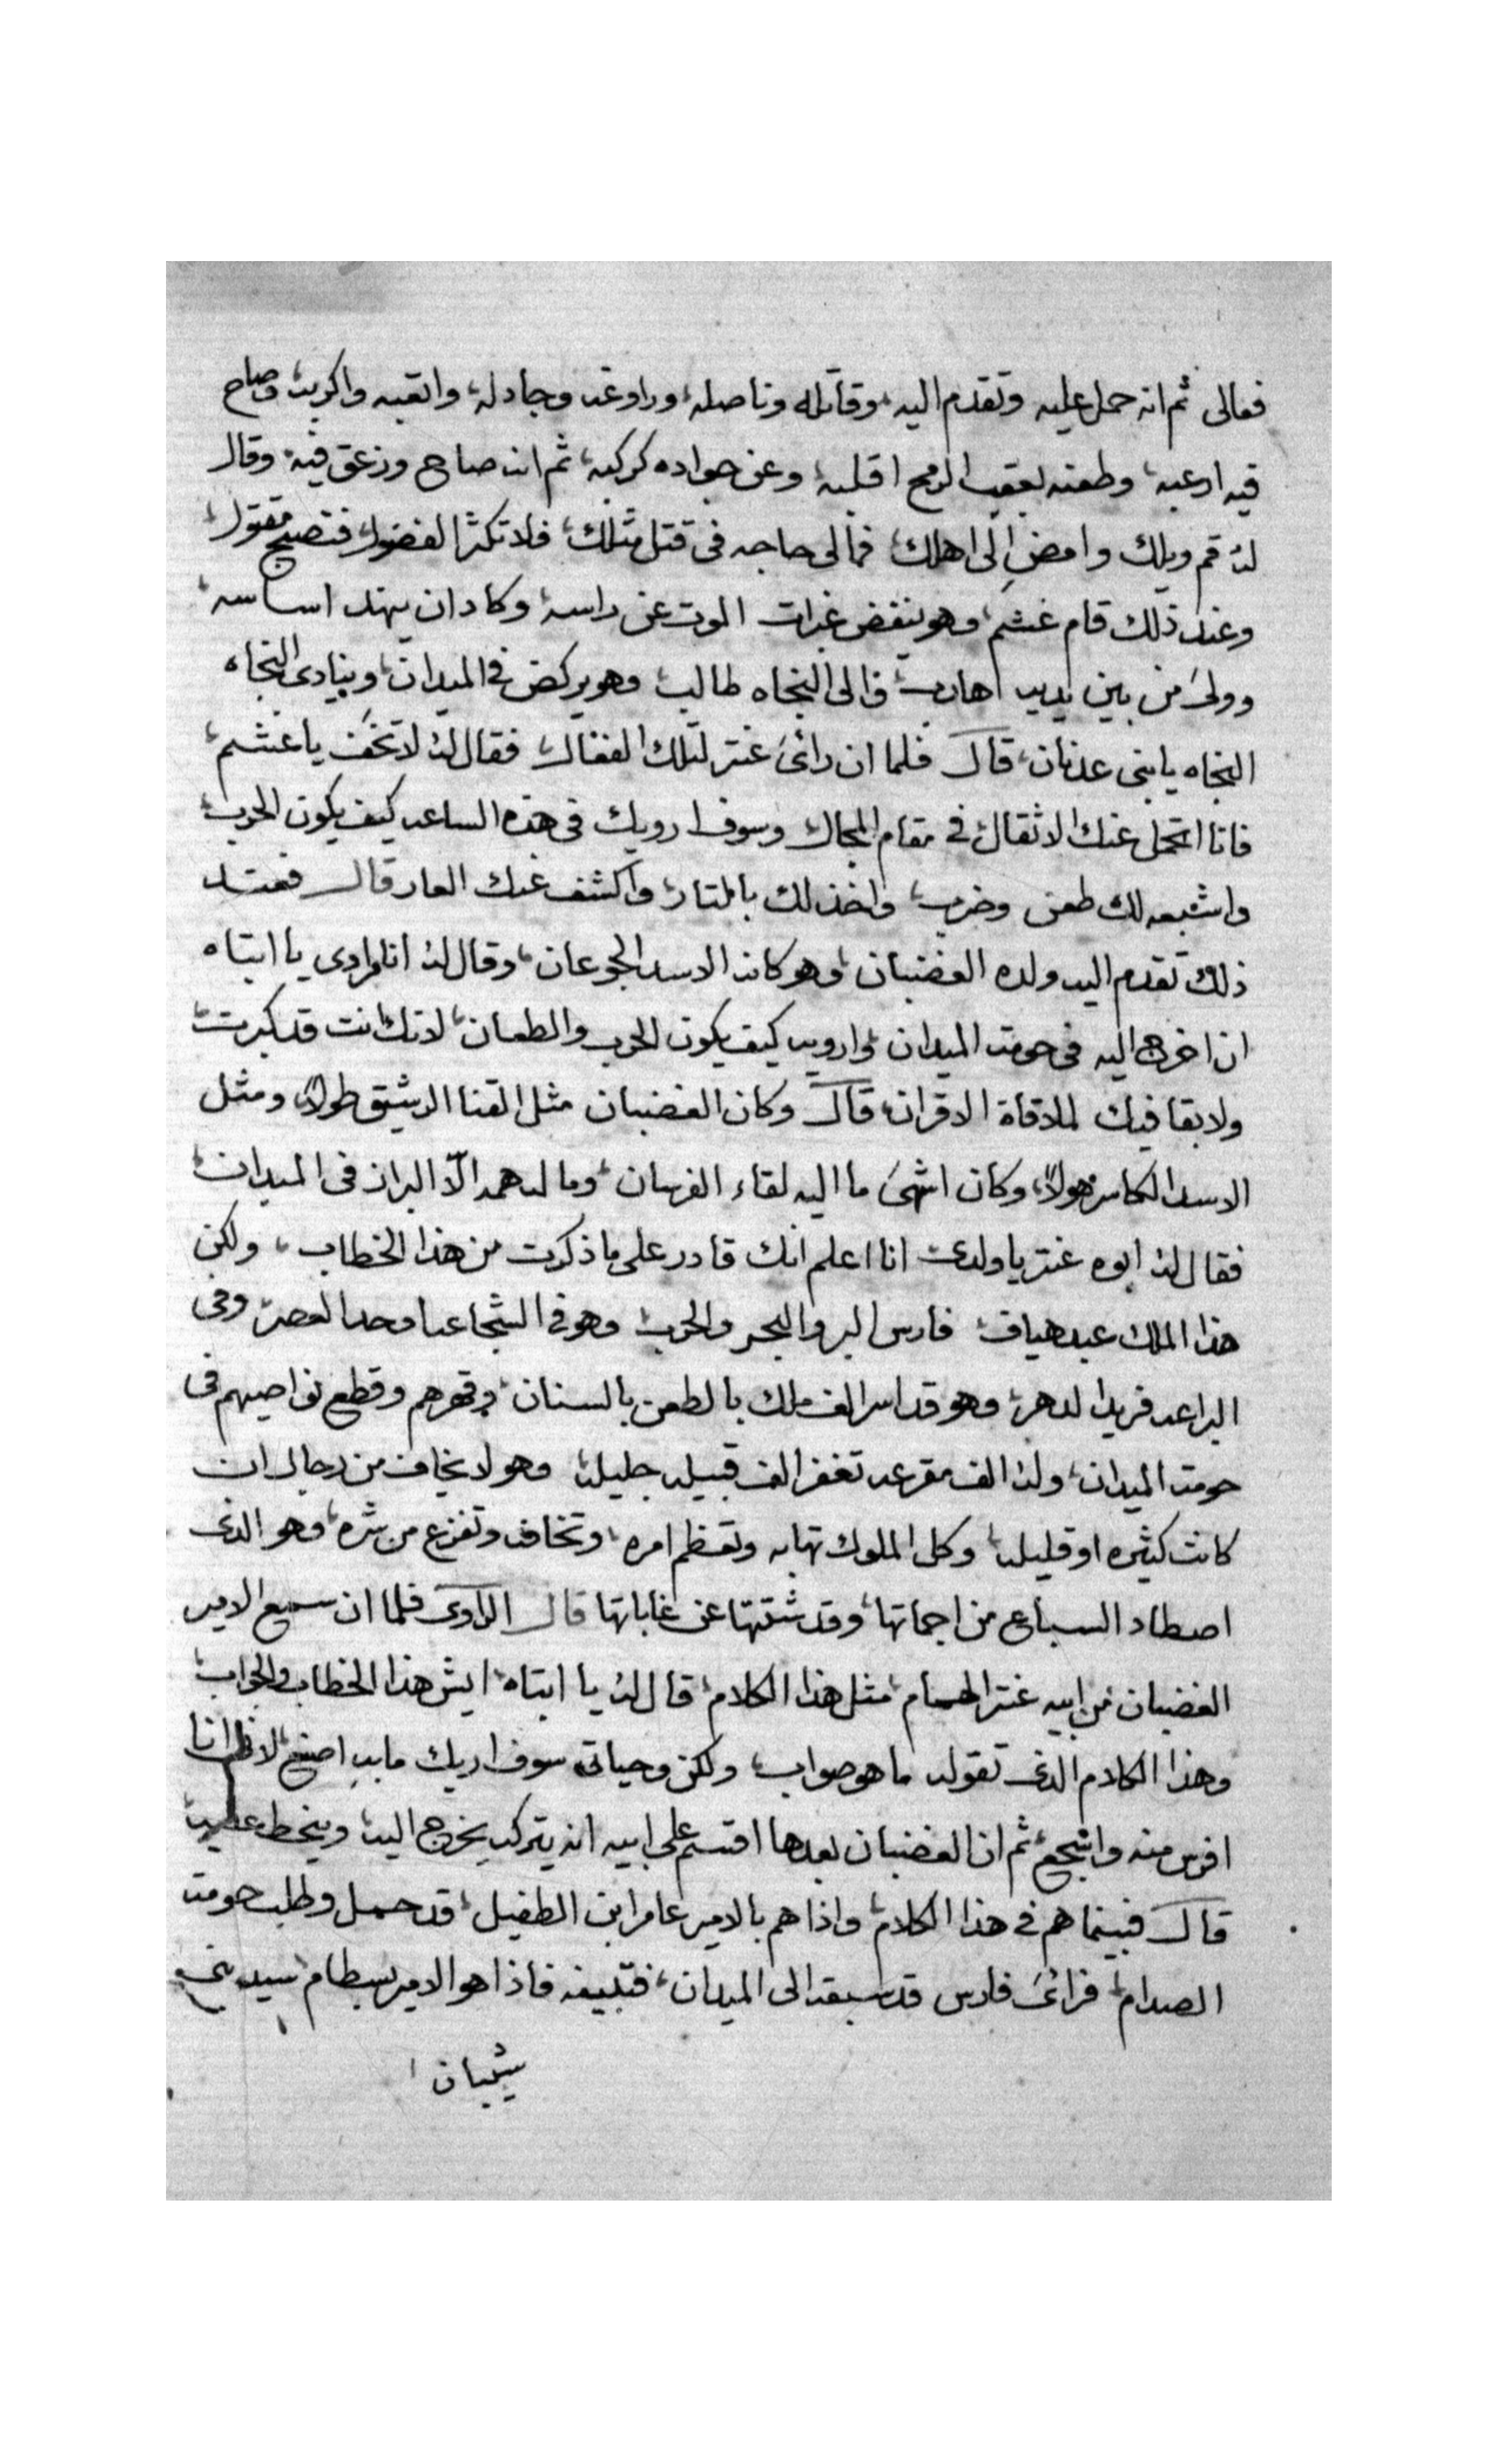 فعالى ثم انه حمل عليه وتقدم اليه، وقاتله وناصله، وراوغه وجادله، واتعبه واكربه، وصاح
فيه ارعبه، وطعنه بعقب الرمح اقلبه، وعن جواده كركبه، ثم انه صاح وزعق فيه، وقال
له قم ويلك وامض الى اهلك، فمالى حاجه فى قتل مثلك، فلا تكثر الفضول، فتصبح مقتول،
وعند ذلك قام غشم، وهو ينفض غبرات الموت عن راسه، وكاد ان يهتد اساسه،
وولى من بين يديه هارب، والى النجاه طالب، وهو يركض فى الميدان، وينادى النجاه
النجاه يا بنى عدنان، قال فلما ان رائ عنتر لتلك الفعال، فقال له لا تخف يا غشم،
فانا اتحمل عنك الاثقال، فى مقام المجال، وسوف ارويك فى هذه الساعه كيف يكون الحرب،
واشبعه لك طعن وضرب، واخذ لك بالتار، واكشف عنك العار قال فعند
ذلك تقدم اليه ولده الغضبان، وهو كانه الاسد الجوعان، وقال له انا مرادى يا ابتاه
ان اخرج اليه فى حومة الميدان، وارويه كيف يكون الحرب والطعان، لانك انت قد كبرت،
ولا بقا فيك لملاقاة الاقران، قال وكان الغضبان مثل القنا الرشيق طولا، ومثل
الاسد الكاسر هولا، وكان اشهى ما اليه لقاء الفرسان، وما له همه الّا البراز فى الميدان،
فقال له ابوه عنتر يا ولدى انا اعلم انك قادر على ما ذكرت من هذا الخطاب، ولكن
هذا الملك عبد هياف، فارس البر والبحر والحرب، وهو فى الشجاعه اوحد العصر، وفى
البراعه فريد الدهر، وهو قد اسر الف ملك بالطعن بالسنان، وقهرهم وقطع نواصيهم فى
حومة الميدان، وله الف مقرعه تغفر الف قبيله جليله، وهو لا يخاف من رجال ان
كانت كثيره او قليله، وكل الملوك تهابه وتعظم امره، وتخاف وتفزع من شره، وهو الذى
اصطاد السباع من اجماتها، وقد شتتها عن غاباتها قال الراوى فلما ان سمع الامير
الغضبان من ابيه عنتر الهمام، مثل هذا الكلام، قال له يا ابتاه، ايش هذا الخطاب والجواب،
وهذا الكلام الذى تقوله ما هو صواب، ولكن وحياتى سوف اريك ما به اصنع، انا
افرس منه واشجع، ثم ان الغضبان بعدها اقسم على ابيه انه يتركه يخرج اليه، وينحط عليه،
قال فبينما هم فى هذا الكلام، واذا هم بالامير عامر ابن الطفيل، قد حمل وطلب حومة
الصدام، فرائ فارس قد سبقه الى الميدان، فتبينه فاذا هو الامير بسطام، سيد بنى
شيبان